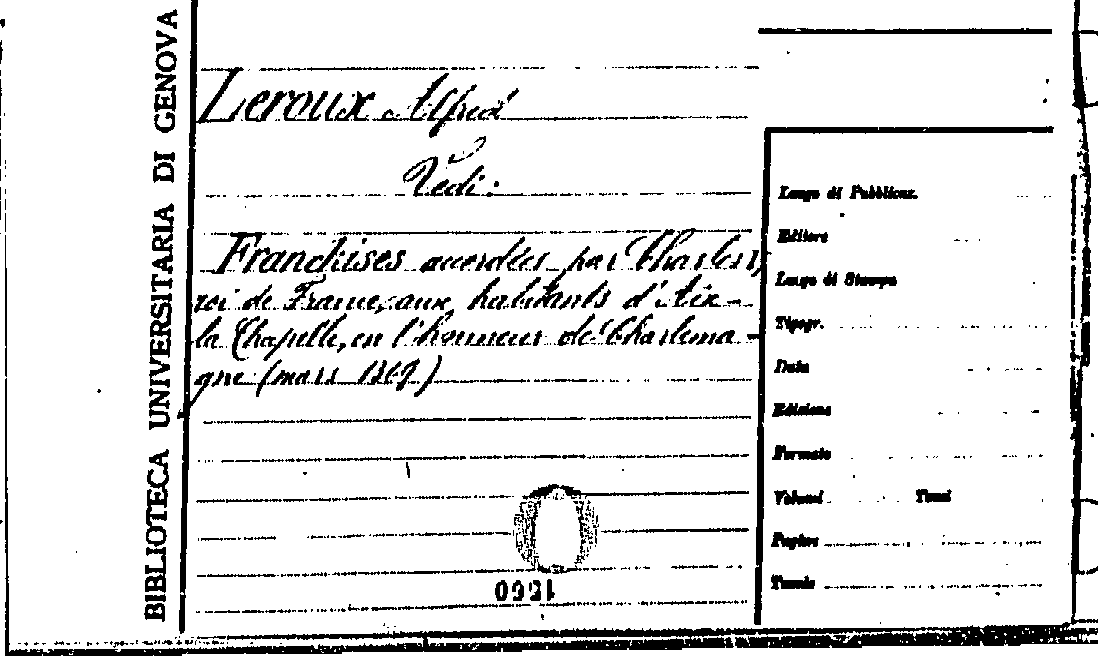 BIBLIOTECA UNIVERSITARIA DI GENOVA
Leroux Alfred
Vedi:
Franchises accordées par Charles V,
roi de France, aux habitants d'Aix-
la Chapelle, en l'honneur de Charlema-
gne (mars 1369)
Luogo di Pubblicaz.
Editore
Luogo di Stampa
Tipogr.
Data
Edizione
Formato
Volumi Tomi
Pagine
Tavole